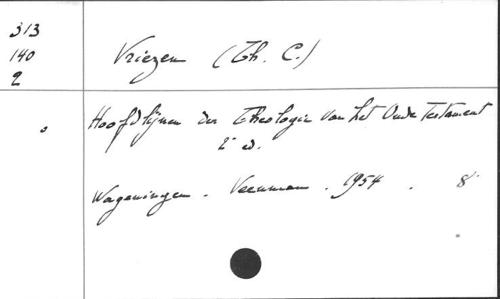 313
140
2
Vriezen (Th. C.)
Hoofdlijnen der Theologie van het Oude Testament
2ᵉ ed.
Wageningen. Veenman. 1954. 8°